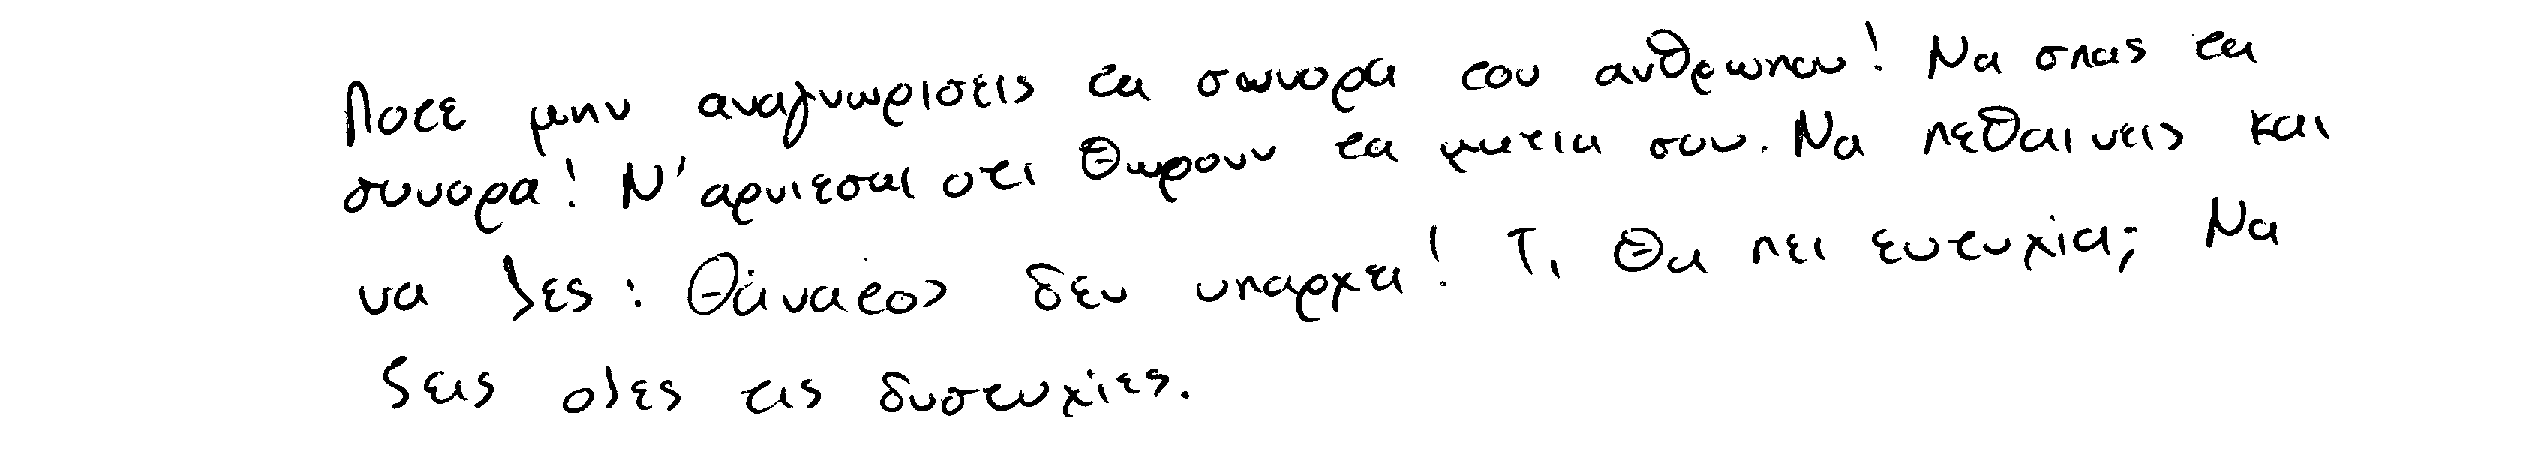 Ποτε μην αναγνωρισεις τα σωνορα του ανθρωπου! Να σπας τα
συνορα! Ν' αρνιεσαι οτι θωρουν τα ματια σου. Να πεθαινεις και
να λες: Θάνατος δεν υπαρχει! Τι θα πει ευτυχία; Να
ζεις ολες τις δυστυχίες.